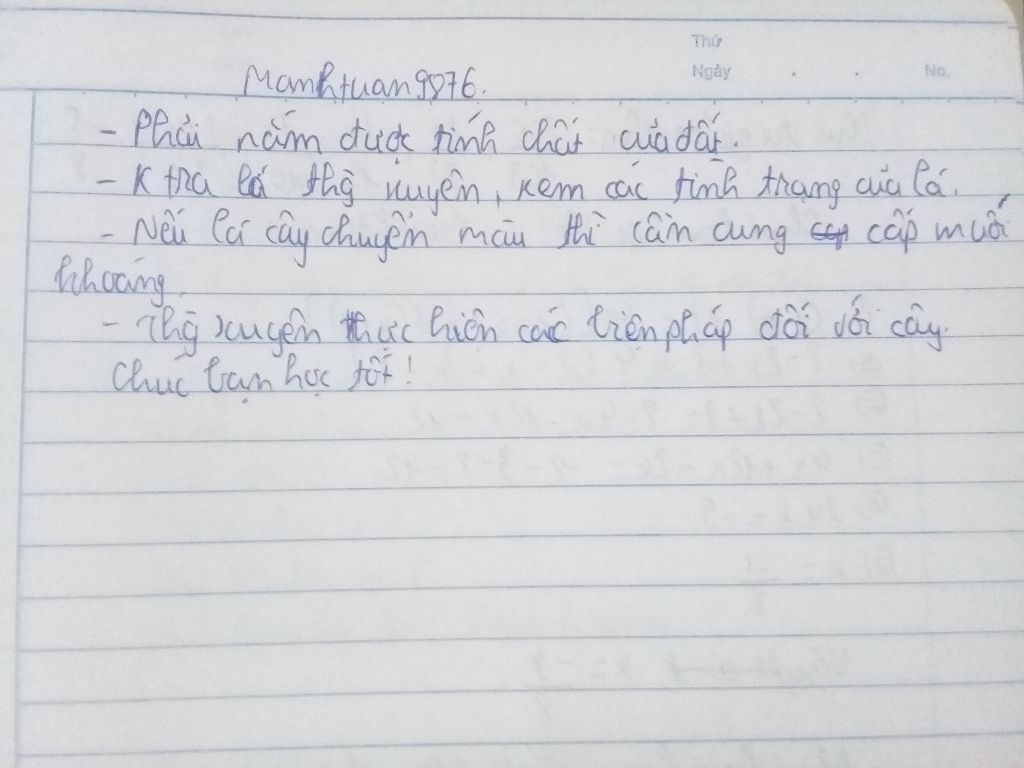 Thứ
Ngày . . No.
Manhtuan9876.
- Phải nắm được tính chất của đất.
- K tra lá thg xuyên, xem các tình trạng của lá.
- Nếu lá cây chuyển màu thì cần cung cấp muối
khoáng.
- Thg xuyên thực hiện các biện pháp đối với cây.
Chúc bạn học tốt!